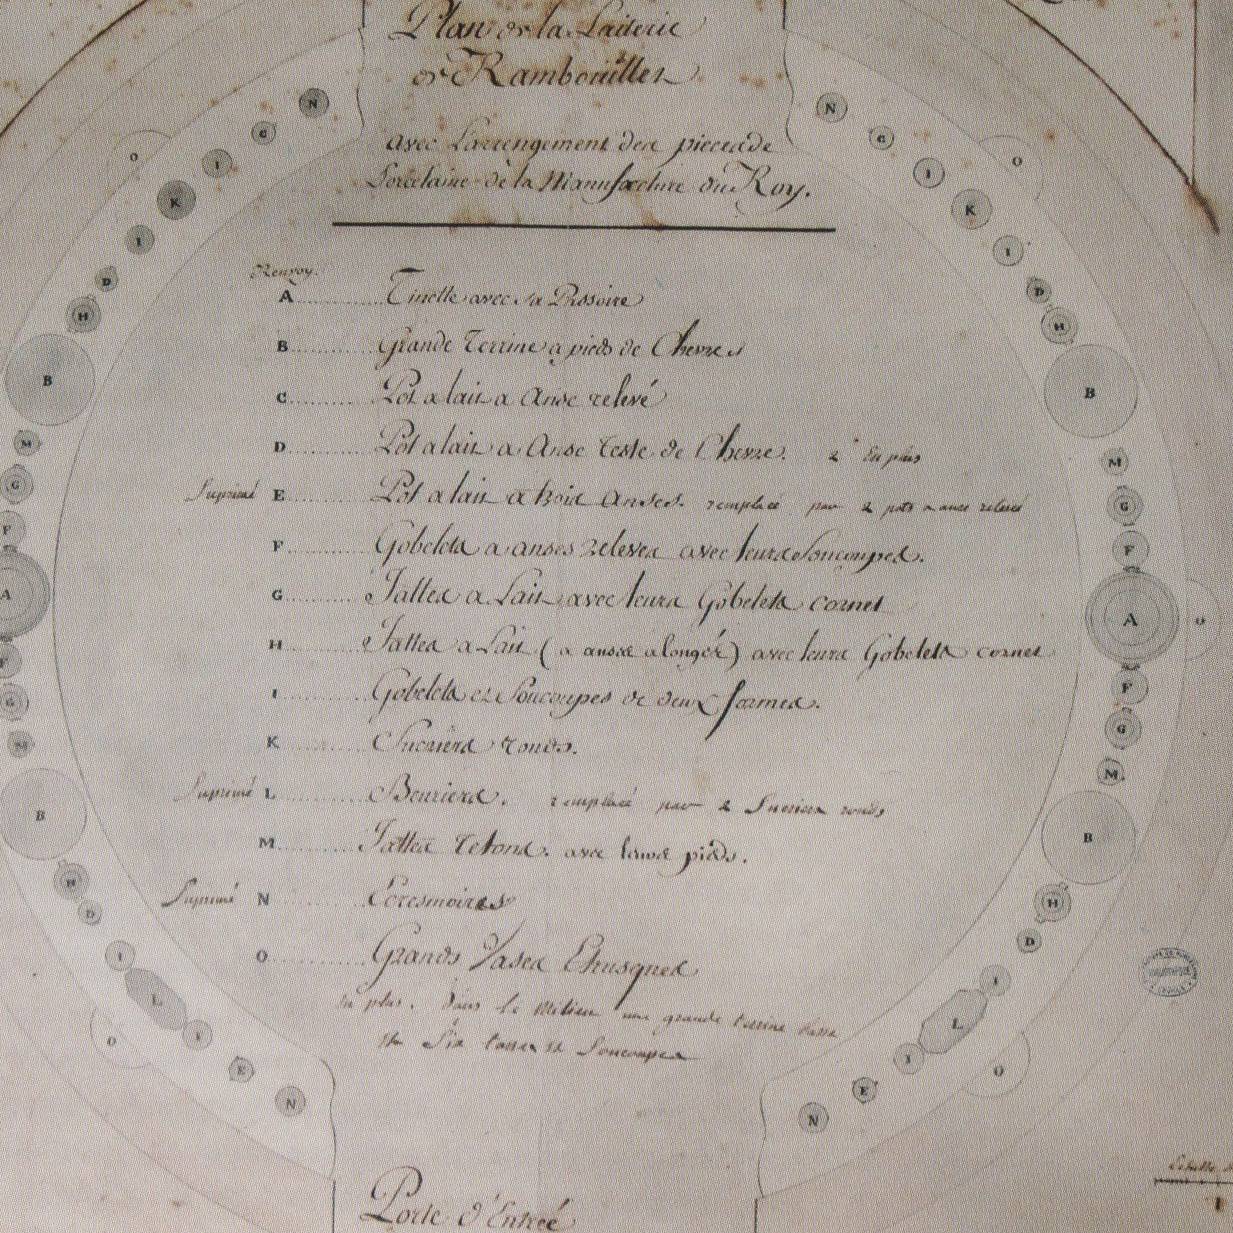 Plan de la Laiterie
de Rambouillet
avec Larrengement des pieces de
Porcelaine de la Manufacture du Roy.
Renvoy.
A ............ Tinette avec sa Pissoire
B ............ Grande Terrine a pieds de Chevres
C ............ Pot a lait a Anse relevé
D ............ Pot a lait a Anse teste de Chevre. 2 En plus
Suprimé E ............ Pot a lait a trois Anses. remplacé par 2 pots a anses relevés
F ............ Gobelets a anses relevea avec leurs Soucoupes.
G ............ Jattes a Lait avec leurs Gobelets cornet
H ............ Jattes a Lait (a anses alongés) avec leurs Gobelets cornet
I ............ Gobelets et Soucoupes de deux formes.
K ............ Sucriers ronds.
Suprimé L ............ Beuriers. remplacé par 2 Sucriers ronds
M ............ Jattes Tetons. avec leurs pieds.
Suprimé N ............ Ecresmoires
O ............ Grands Vases Etrusques
En plus. Dans le Milieu une grande terrine basse
et Six tasses et Soucoupes
Porte d'Entrée
N
G
I
K
I
D
H
B
M
G
F
A
F
G
M
B
H
D
I
L
I
E
N
O
O
N
G
I
K
I
D
H
B
M
G
F
A
F
G
M
B
H
D
I
L
I
E
N
O
O
O
Echelle
1